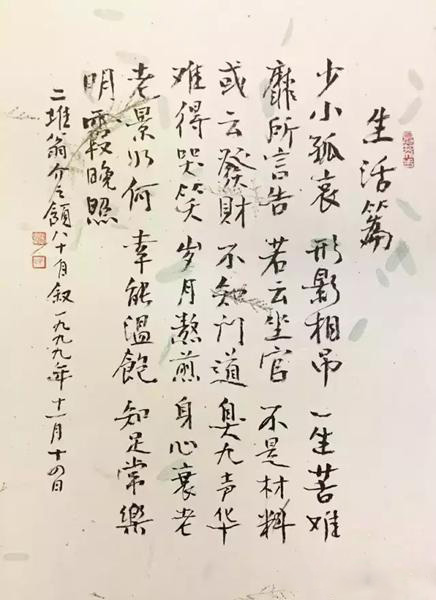 生活篇
少小孤哀 形影相吊 一生苦难
靡所言告 若云坐官 不是材料
或云發財 不知门道 臭九声华
难得哭笑 岁月熬煎 身心衰老
老景如何 幸能温飽 知足常樂
明霞晚照
二堆翁介之 八十 叙一九九九年十一月十四日